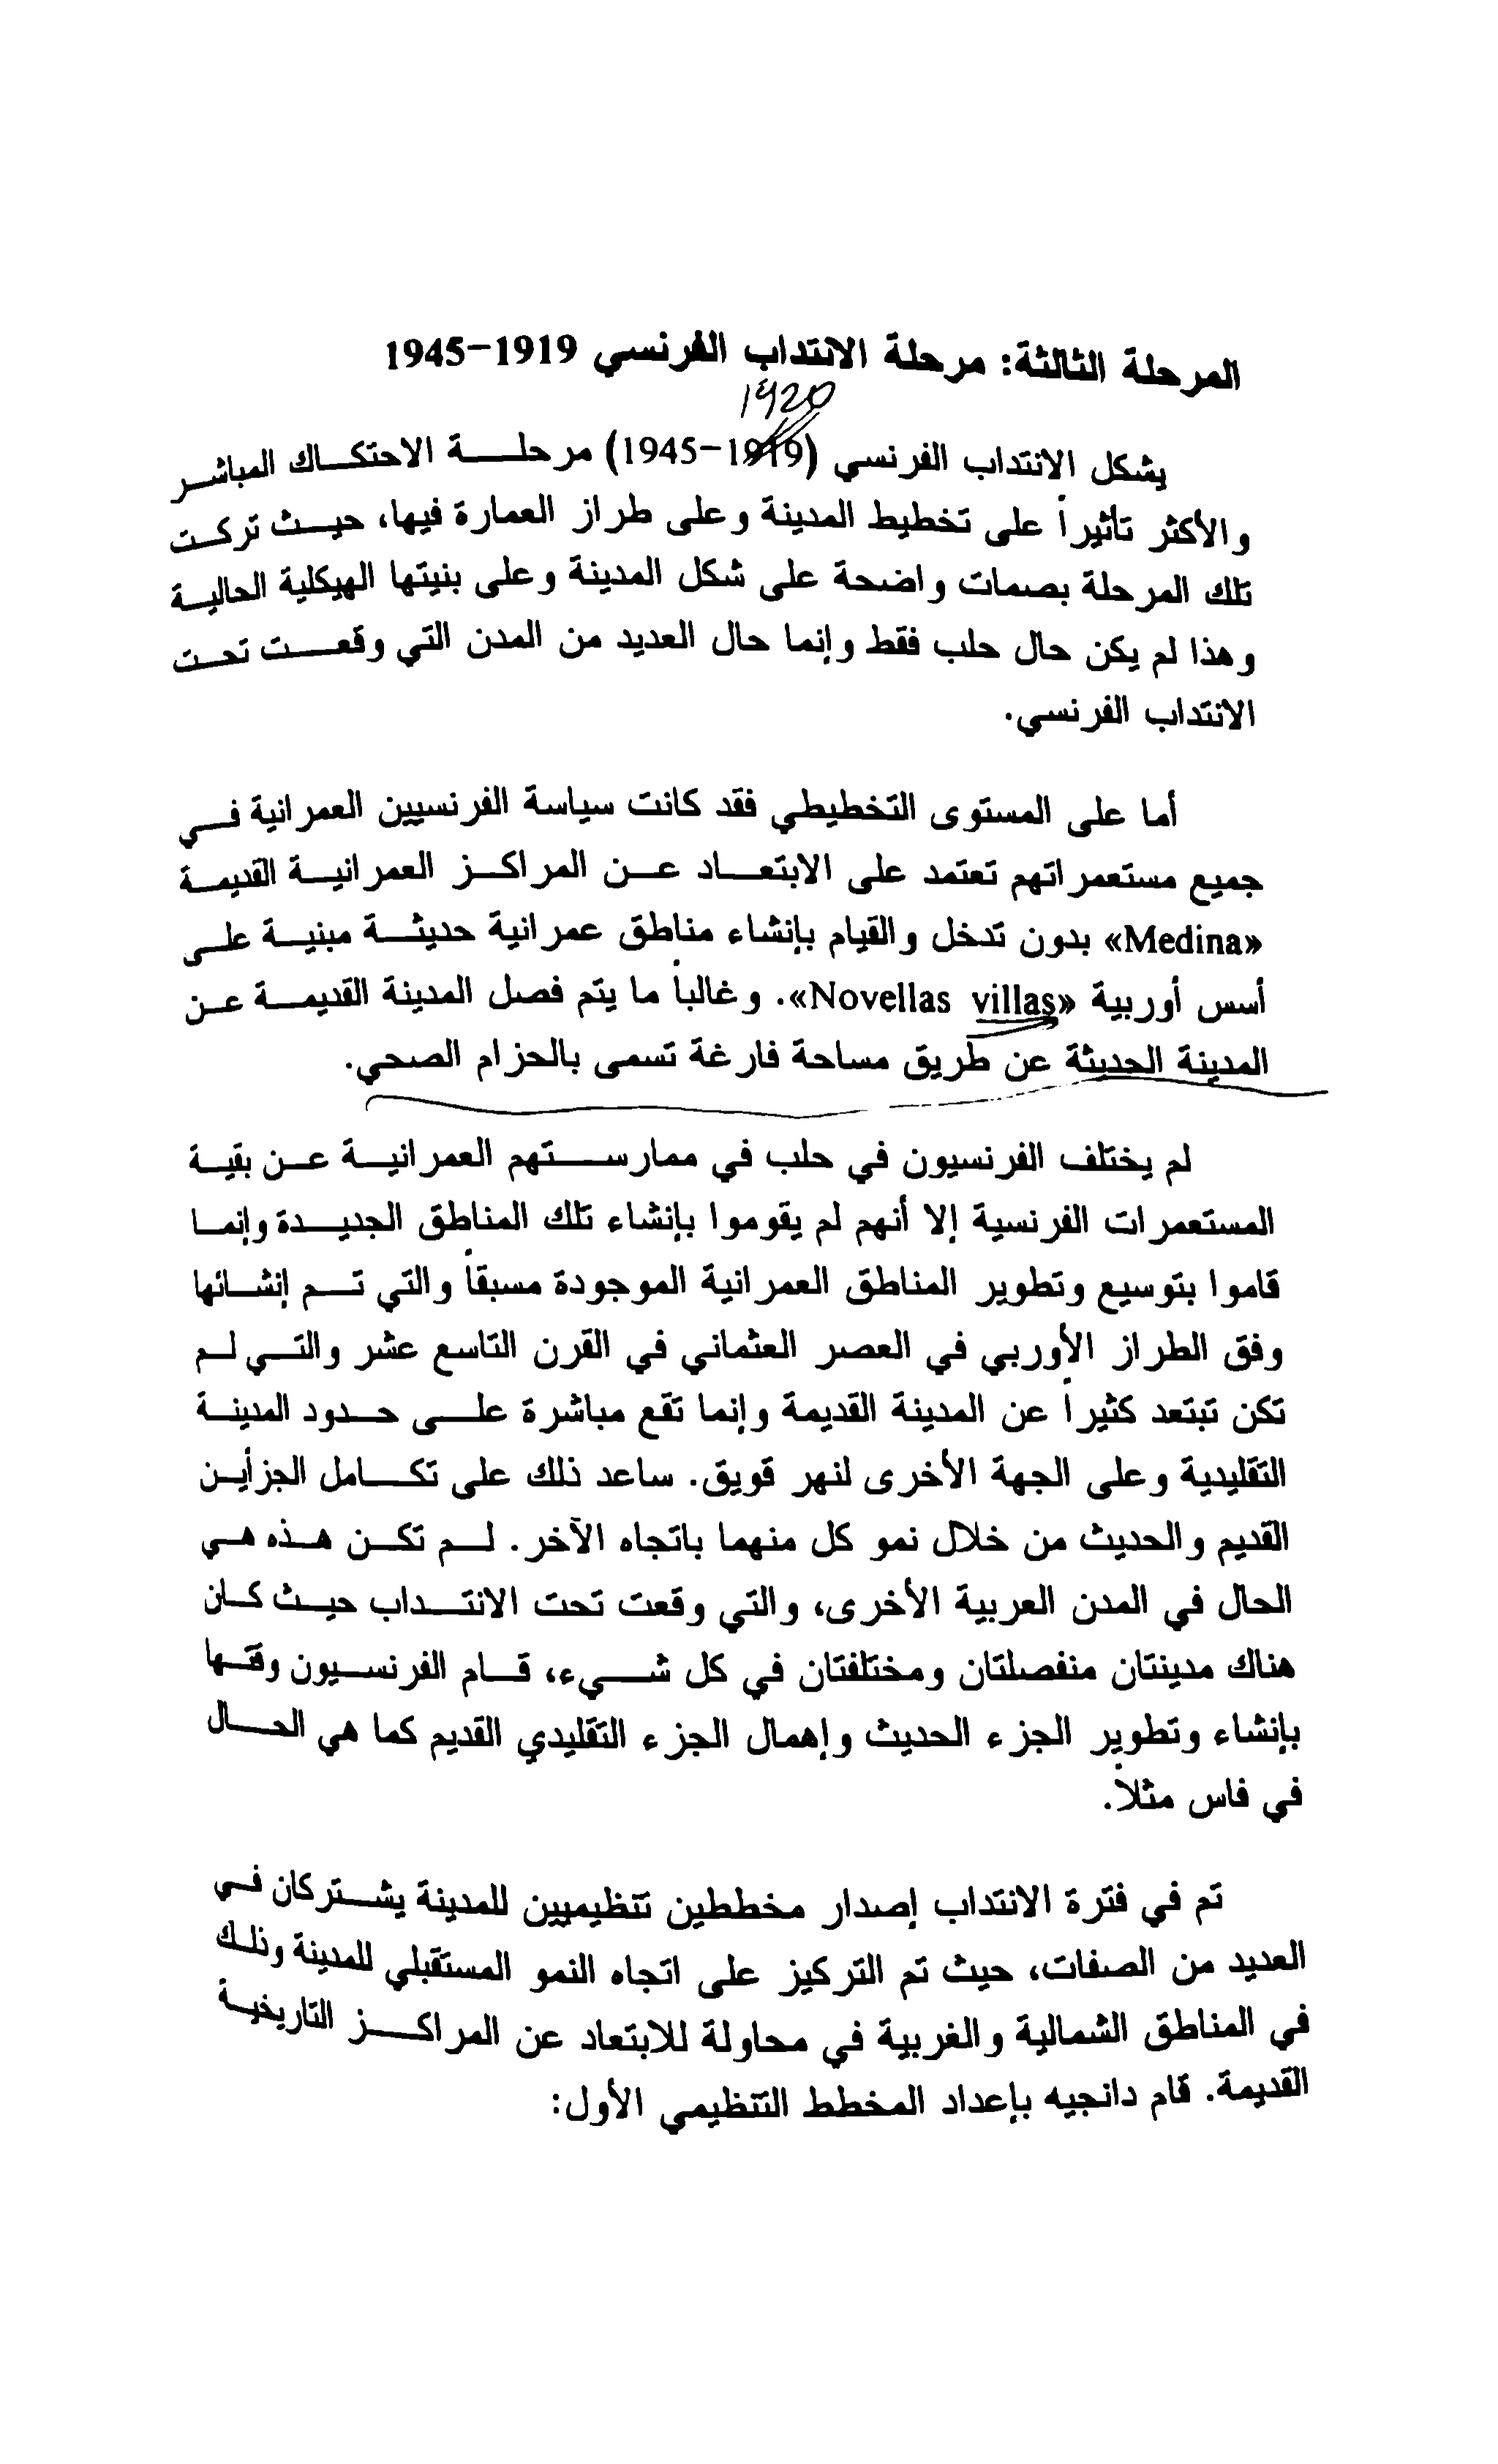 المرحلة الثالثة: مرحلة الانتداب الفرنسي 1919-1945
1920
يشكل الانتداب الفرنسي (1919-1945) مرحلة الاحتكاك المباشر
والأكثر تأثيراً على تخطيط المدينة وعلى طراز العمارة فيها، حيث تركت
تلك المرحلة بصمات واضحة على شكل المدينة وعلى بنيتها الهيكلية الحالية
وهذا لم يكن حال حلب فقط وإنما حال العديد من المدن التي وقعت تحت
الانتداب الفرنسي.
أما على المستوى التخطيطي فقد كانت سياسة الفرنسيين العمرانية في
جميع مستعمراتهم تعتمد على الابتعاد عن المراكز العمرانية القديمة
«Medina» بدون تدخل والقيام بإنشاء مناطق عمرانية حديثة مبنية على
أسس أوربية «Novellas villas». وغالباً ما يتم فصل المدينة القديمة عن
المدينة الحديثة عن طريق مساحة فارغة تسمى بالحزام الصحي.
لم يختلف الفرنسيون في حلب في ممارستهم العمرانية عن بقية
المستعمرات الفرنسية إلا أنهم لم يقوموا بإنشاء تلك المناطق الجديدة وإنما
قاموا بتوسيع وتطوير المناطق العمرانية الموجودة مسبقاً والتي تم إنشائها
وفق الطراز الأوربي في العصر العثماني في القرن التاسع عشر والتي لم
تكن تبتعد كثيراً عن المدينة القديمة وإنما تقع مباشرة على حدود المدينة
التقليدية وعلى الجهة الأخرى لنهر قويق. ساعد ذلك على تكامل الجزأين
القديم والحديث من خلال نمو كل منهما باتجاه الآخر. لم تكن هذه هي
الحال في المدن العربية الأخرى، والتي وقعت تحت الانتداب حيث كان
هناك مدينتان منفصلتان ومختلفتان في كل شيء، قام الفرنسيون وقتها
بإنشاء وتطوير الجزء الحديث وإهمال الجزء التقليدي القديم كما هي الحال
في فاس مثلاً.
تم في فترة الانتداب إصدار مخططين تنظيميين للمدينة يشتركان في
العديد من الصفات، حيث تم التركيز على اتجاه النمو المستقبلي للمدينة وذلك
في المناطق الشمالية والغربية في محاولة للابتعاد عن المراكز التاريخية
القديمة. قام دانجيه بإعداد المخطط التنظيمي الأول: